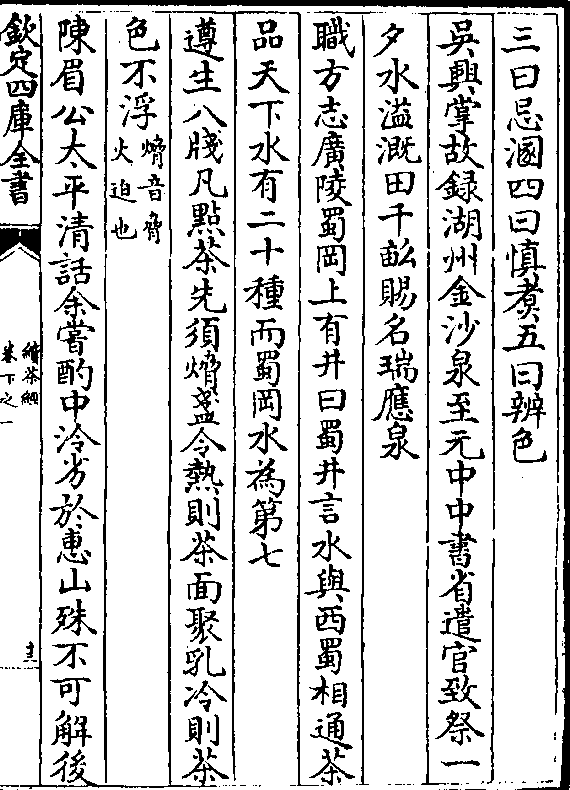 三曰忌溷四曰慎煑五曰辨色
吳興掌故録湖州金沙泉至元中中書省遣官致祭一
夕水溢溉田千畝賜名瑞應泉
職方志廣陵蜀岡上有井曰蜀井言水與西蜀相通茶
品天下水有二十種而蜀岡水為第七
遵生八牋凡點茶先須熁盞令熱則茶面聚乳冷則茶
色不浮熁音脅
火迫也
陳眉公太平清話余嘗酌中泠劣於惠山殊不可解後
欽定四庫全書
續茶經
卷下之一